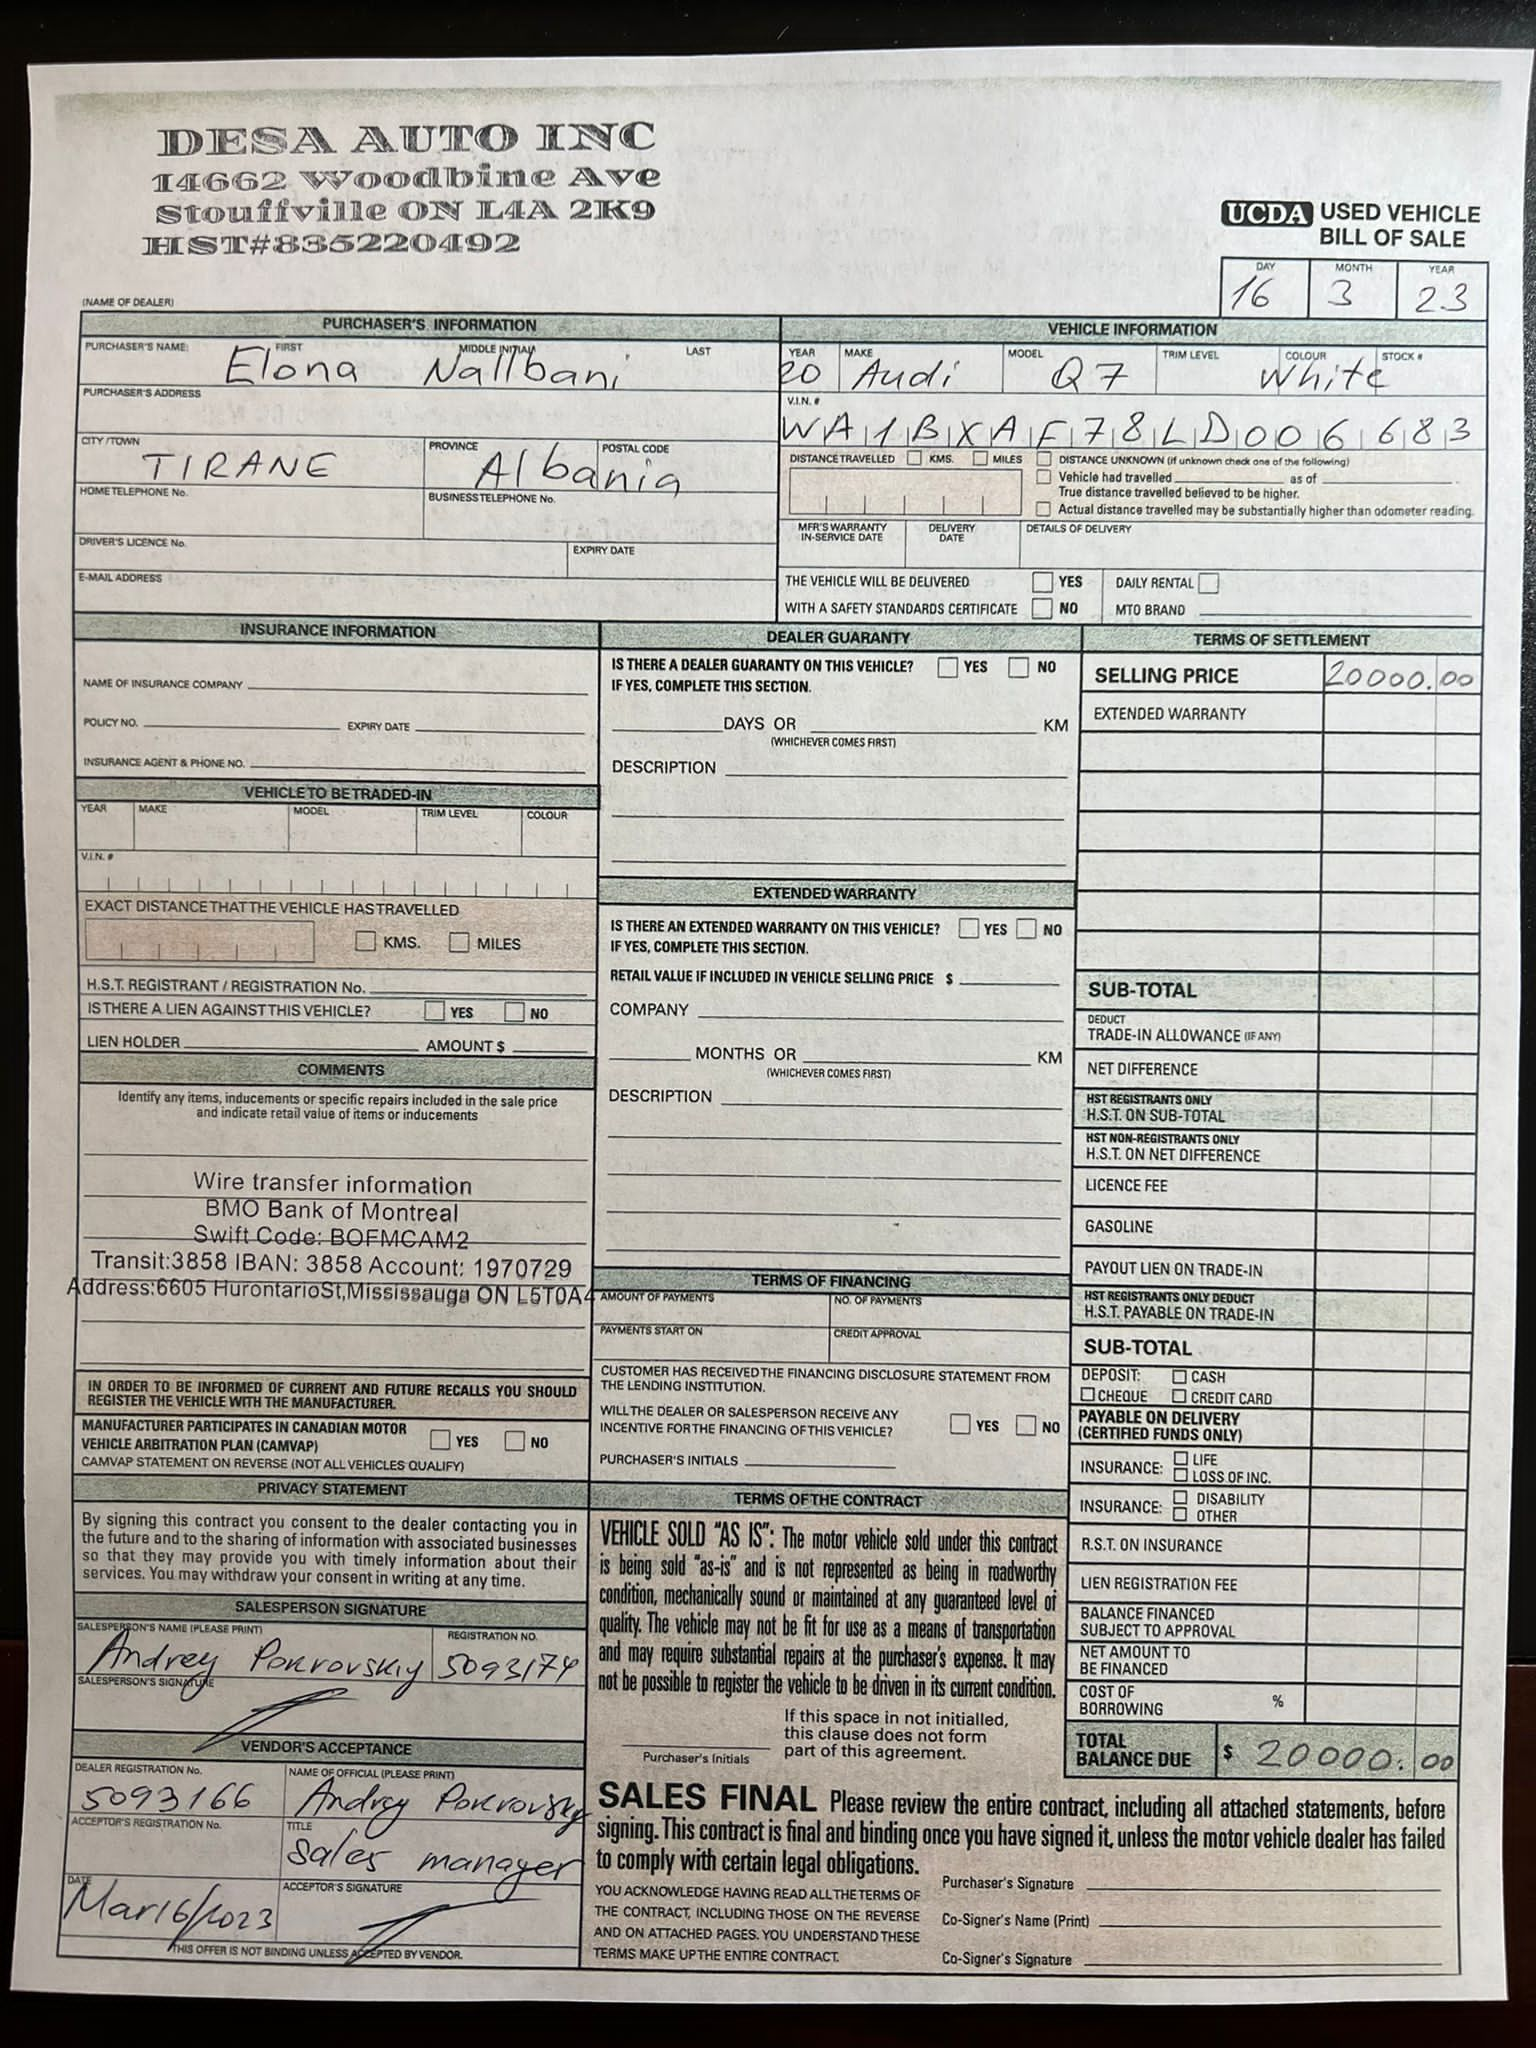 DESA AUTO INC
14662 Woodbine Ave
Stouffville ON L4A 2K9
HST#835220492
UCDA USED VEHICLE
BILL OF SALE
DAY MONTH YEAR
16 3 23
(NAME OF DEALER)
PURCHASER'S INFORMATION
PURCHASER'S NAME: FIRST MIDDLE INITIAL LAST
Elona Nallbani
PURCHASER'S ADDRESS
CITY/TOWN PROVINCE POSTAL CODE
TIRANE Albania
HOME TELEPHONE No. BUSINESS TELEPHONE No.
DRIVER'S LICENCE No. EXPIRY DATE
E-MAIL ADDRESS
VEHICLE INFORMATION
YEAR MAKE MODEL TRIM LEVEL COLOUR STOCK #
20 Audi Q7 White
V.I.N. #
WA1BXAF78LD006683
DISTANCE TRAVELLED KMS. MILES
DISTANCE UNKNOWN (If unknown check one of the following)
Vehicle had travelled as of .
True distance travelled believed to be higher.
Actual distance travelled may be substantially higher than odometer reading.
MFR'S WARRANTY IN-SERVICE DATE
DELIVERY DATE
DETAILS OF DELIVERY
THE VEHICLE WILL BE DELIVERED YES DAILY RENTAL
WITH A SAFETY STANDARDS CERTIFICATE NO MTO BRAND
INSURANCE INFORMATION
NAME OF INSURANCE COMPANY
POLICY NO. EXPIRY DATE
INSURANCE AGENT & PHONE NO.
VEHICLE TO BE TRADED-IN
YEAR MAKE MODEL TRIM LEVEL COLOUR
V.I.N. #
EXACT DISTANCE THAT THE VEHICLE HAS TRAVELLED
KMS. MILES
H.S.T. REGISTRANT / REGISTRATION No.
IS THERE A LIEN AGAINST THIS VEHICLE? YES NO
LIEN HOLDER AMOUNT $
COMMENTS
Identify any items, inducements or specific repairs included in the sale price
and indicate retail value of items or inducements
Wire transfer information
BMO Bank of Montreal
Swift Code: BOFMCAM2
Transit:3858 IBAN: 3858 Account: 1970729
Address:6605 HurontarioSt,Mississauga ON L5T0A4
IN ORDER TO BE INFORMED OF CURRENT AND FUTURE RECALLS YOU SHOULD
REGISTER THE VEHICLE WITH THE MANUFACTURER.
MANUFACTURER PARTICIPATES IN CANADIAN MOTOR
VEHICLE ARBITRATION PLAN (CAMVAP) YES NO
CAMVAP STATEMENT ON REVERSE (NOT ALL VEHICLES QUALIFY)
PRIVACY STATEMENT
By signing this contract you consent to the dealer contacting you in
the future and to the sharing of information with associated businesses
so that they may provide you with timely information about their
services. You may withdraw your consent in writing at any time.
SALESPERSON SIGNATURE
SALESPERSON'S NAME (PLEASE PRINT) REGISTRATION NO.
Andrey Pokrovskiy 5093174
SALESPERSON'S SIGNATURE
VENDOR'S ACCEPTANCE
DEALER REGISTRATION No. NAME OF OFFICIAL (PLEASE PRINT)
5093166 Andrey Pokrovskiy
ACCEPTOR'S REGISTRATION No. TITLE
Sales manager
DATE ACCEPTOR'S SIGNATURE
Mar16/2023
THIS OFFER IS NOT BINDING UNLESS ACCEPTED BY VENDOR.
DEALER GUARANTY
IS THERE A DEALER GUARANTY ON THIS VEHICLE? YES NO
IF YES, COMPLETE THIS SECTION.
DAYS OR KM
(WHICHEVER COMES FIRST)
DESCRIPTION
EXTENDED WARRANTY
IS THERE AN EXTENDED WARRANTY ON THIS VEHICLE? YES NO
IF YES, COMPLETE THIS SECTION.
RETAIL VALUE IF INCLUDED IN VEHICLE SELLING PRICE $
COMPANY
MONTHS OR KM
(WHICHEVER COMES FIRST)
DESCRIPTION
TERMS OF FINANCING
AMOUNT OF PAYMENTS NO. OF PAYMENTS
PAYMENTS START ON CREDIT APPROVAL
CUSTOMER HAS RECEIVED THE FINANCING DISCLOSURE STATEMENT FROM
THE LENDING INSTITUTION.
WILL THE DEALER OR SALESPERSON RECEIVE ANY
INCENTIVE FOR THE FINANCING OF THIS VEHICLE? YES NO
PURCHASER'S INITIALS
TERMS OF THE CONTRACT
VEHICLE SOLD "AS IS": The motor vehicle sold under this contract
is being sold "as-is" and is not represented as being in roadworthy
condition, mechanically sound or maintained at any guaranteed level of
quality. The vehicle may not be fit for use as a means of transportation
and may require substantial repairs at the purchaser's expense. It may
not be possible to register the vehicle to be driven in its current condition.
Purchaser's Initials
If this space in not initialled,
this clause does not form
part of this agreement.
TERMS OF SETTLEMENT
SELLING PRICE 20000.00
EXTENDED WARRANTY
SUB-TOTAL
DEDUCT
TRADE-IN ALLOWANCE (IF ANY)
NET DIFFERENCE
HST REGISTRANTS ONLY
H.S.T. ON SUB-TOTAL
HST NON-REGISTRANTS ONLY
H.S.T. ON NET DIFFERENCE
LICENCE FEE
GASOLINE
PAYOUT LIEN ON TRADE-IN
HST REGISTRANTS ONLY DEDUCT
H.S.T. PAYABLE ON TRADE-IN
SUB-TOTAL
DEPOSIT: CASH
CHEQUE CREDIT CARD
PAYABLE ON DELIVERY
(CERTIFIED FUNDS ONLY)
INSURANCE: LIFE
LOSS OF INC.
INSURANCE: DISABILITY
OTHER
R.S.T. ON INSURANCE
LIEN REGISTRATION FEE
BALANCE FINANCED
SUBJECT TO APPROVAL
NET AMOUNT TO
BE FINANCED
COST OF
BORROWING %
TOTAL
BALANCE DUE $ 20000.00
SALES FINAL Please review the entire contract, including all attached statements, before
signing. This contract is final and binding once you have signed it, unless the motor vehicle dealer has failed
to comply with certain legal obligations.
YOU ACKNOWLEDGE HAVING READ ALL THE TERMS OF
THE CONTRACT, INCLUDING THOSE ON THE REVERSE
AND ON ATTACHED PAGES. YOU UNDERSTAND THESE
TERMS MAKE UP THE ENTIRE CONTRACT.
Purchaser's Signature
Co-Signer's Name (Print)
Co-Signer's Signature